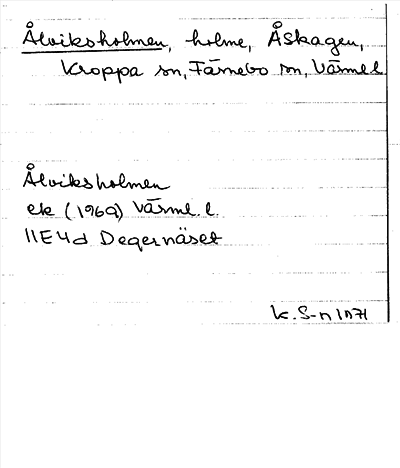 Ålviksholmen, holme, Åskagen,
Kroppa sn, Färnebo sn, Värml
Ålviksholmen
ek (1969) Värml. l.
11E4d Degernäset
K. S-n 1971